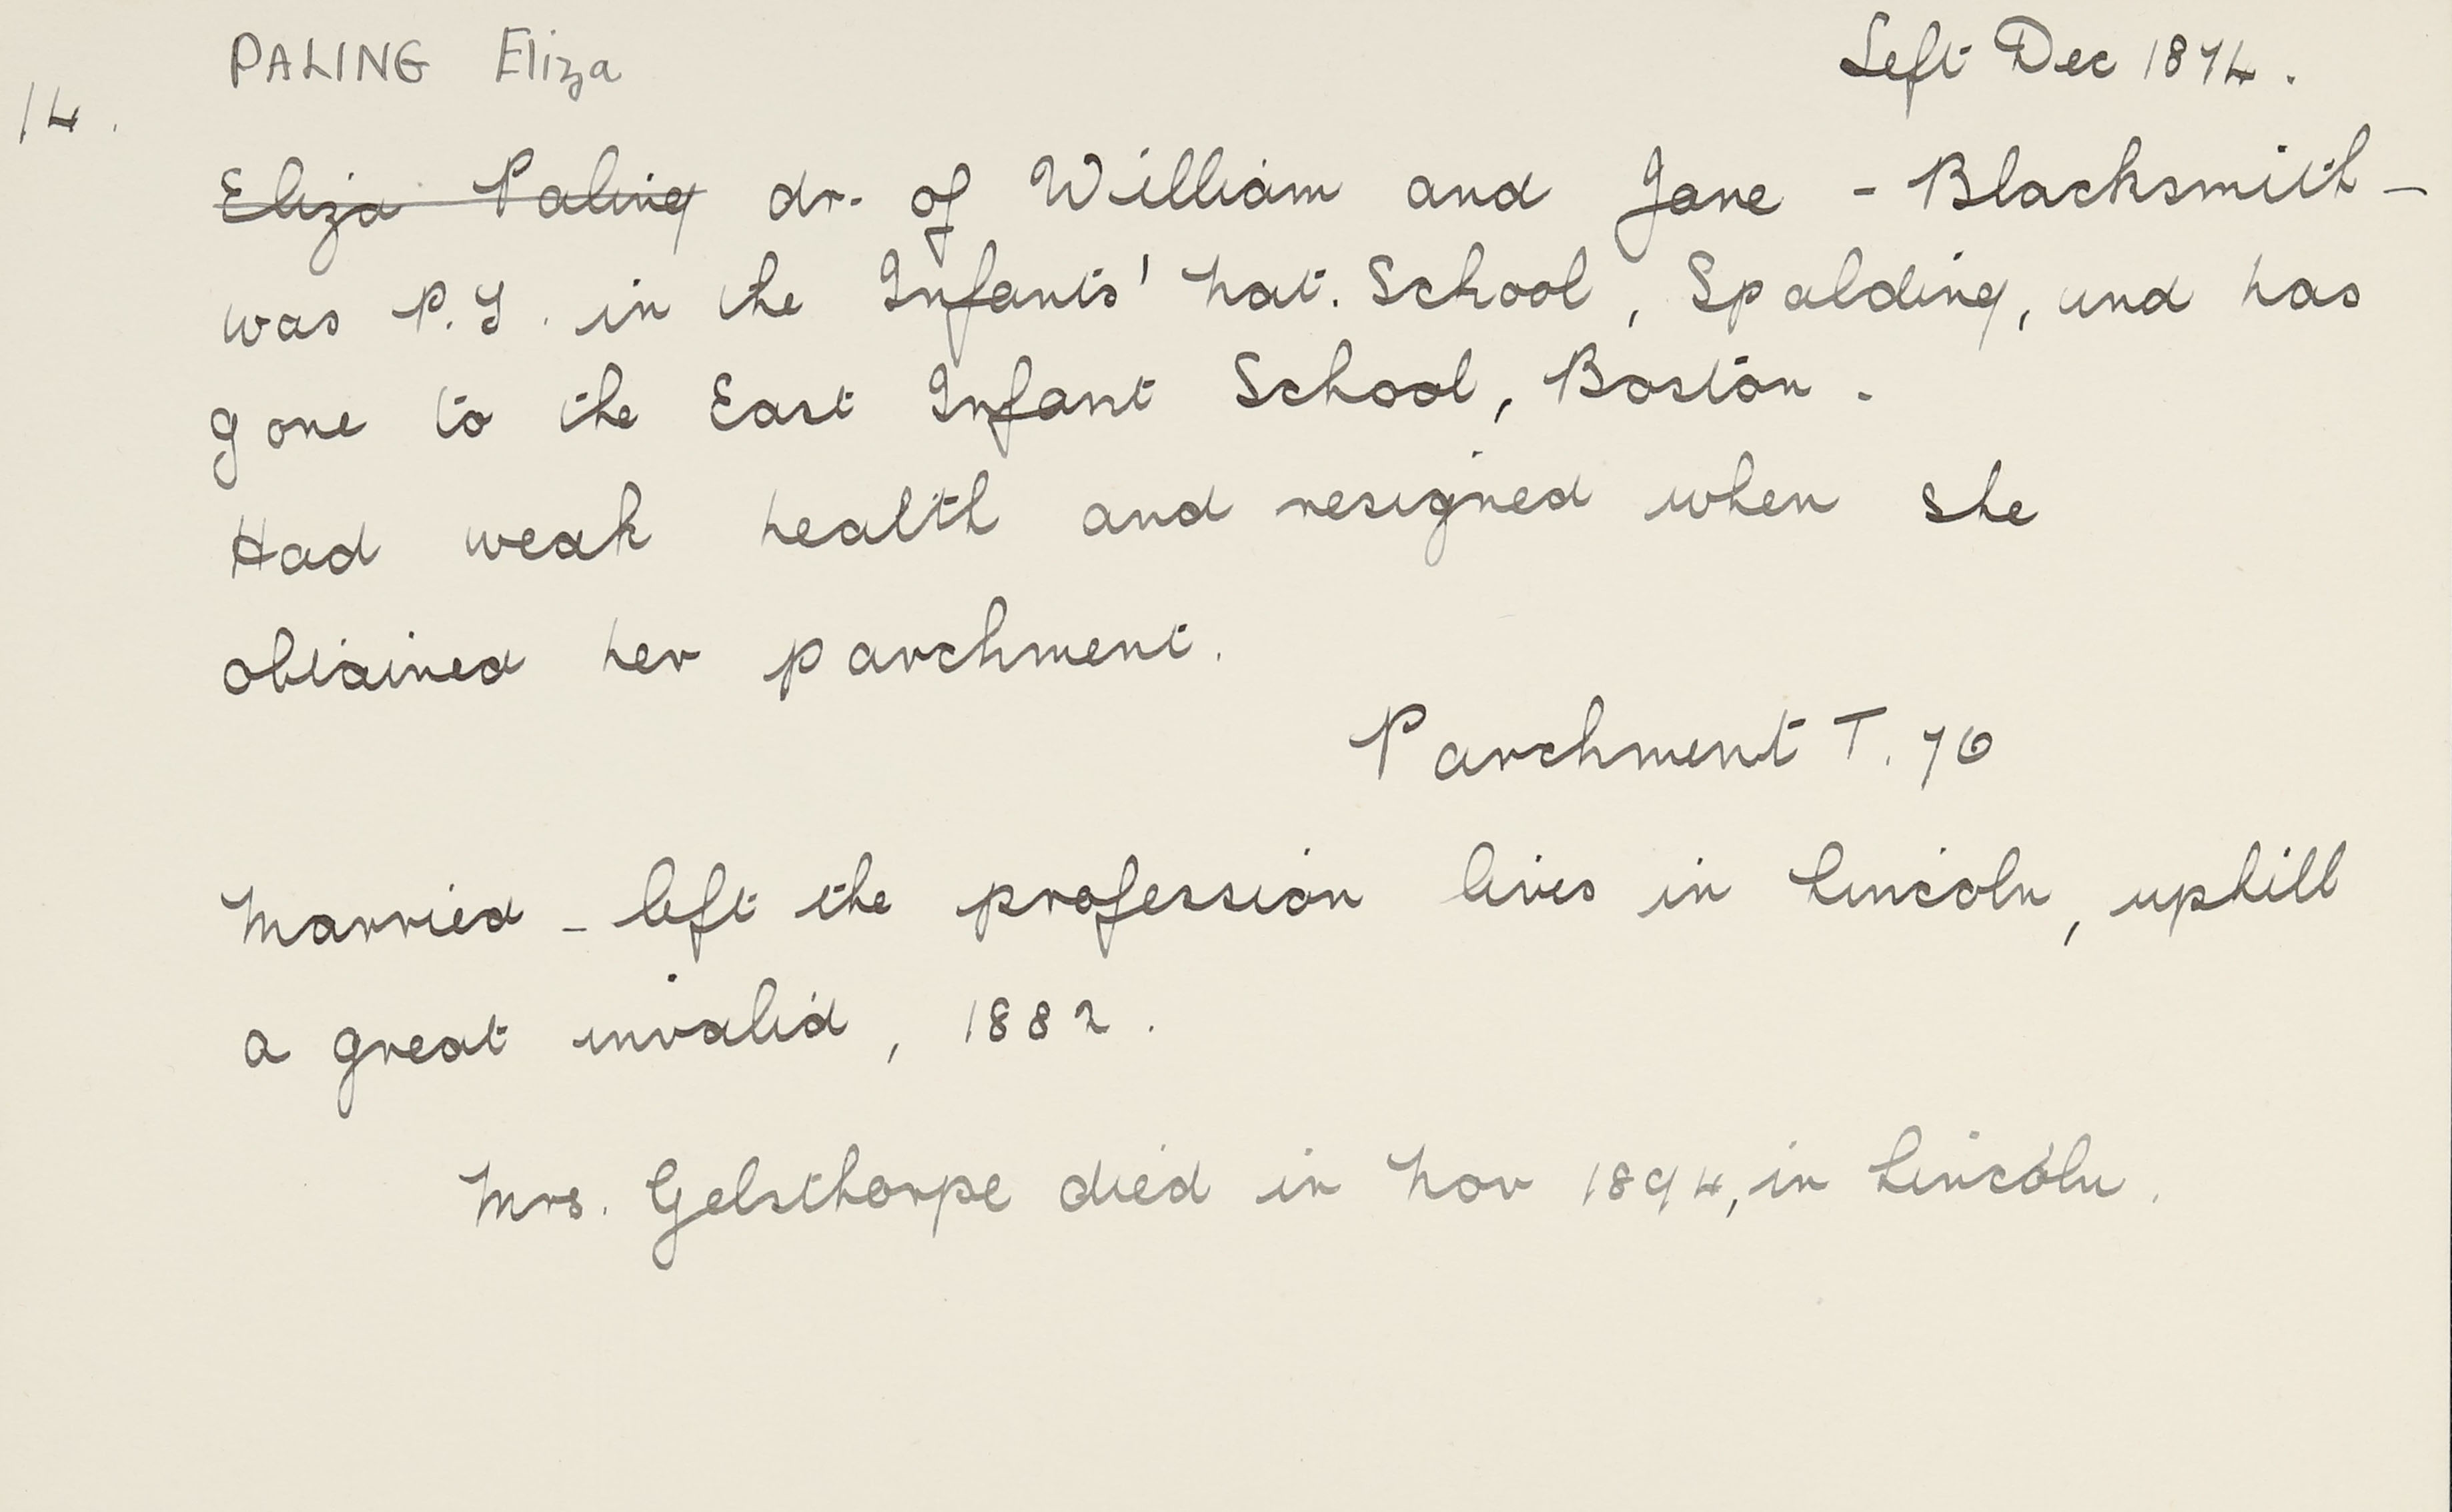 PALING Eliza Left Dec 1874.
14.
Eliza Paling dr. of William and Jane - Blacksmith -
was P.T. in the Infants' Nat. School, Spalding, and has
gone to the East Infant School, Boston.
Had weak health and resigned when she
obtained her parchment.
Parchment T. 76
Married - left the profession lives in Lincoln, uphill
a great invalid, 1882.
Mrs. Gelsthorpe died in Nov 1894, in Lincoln.